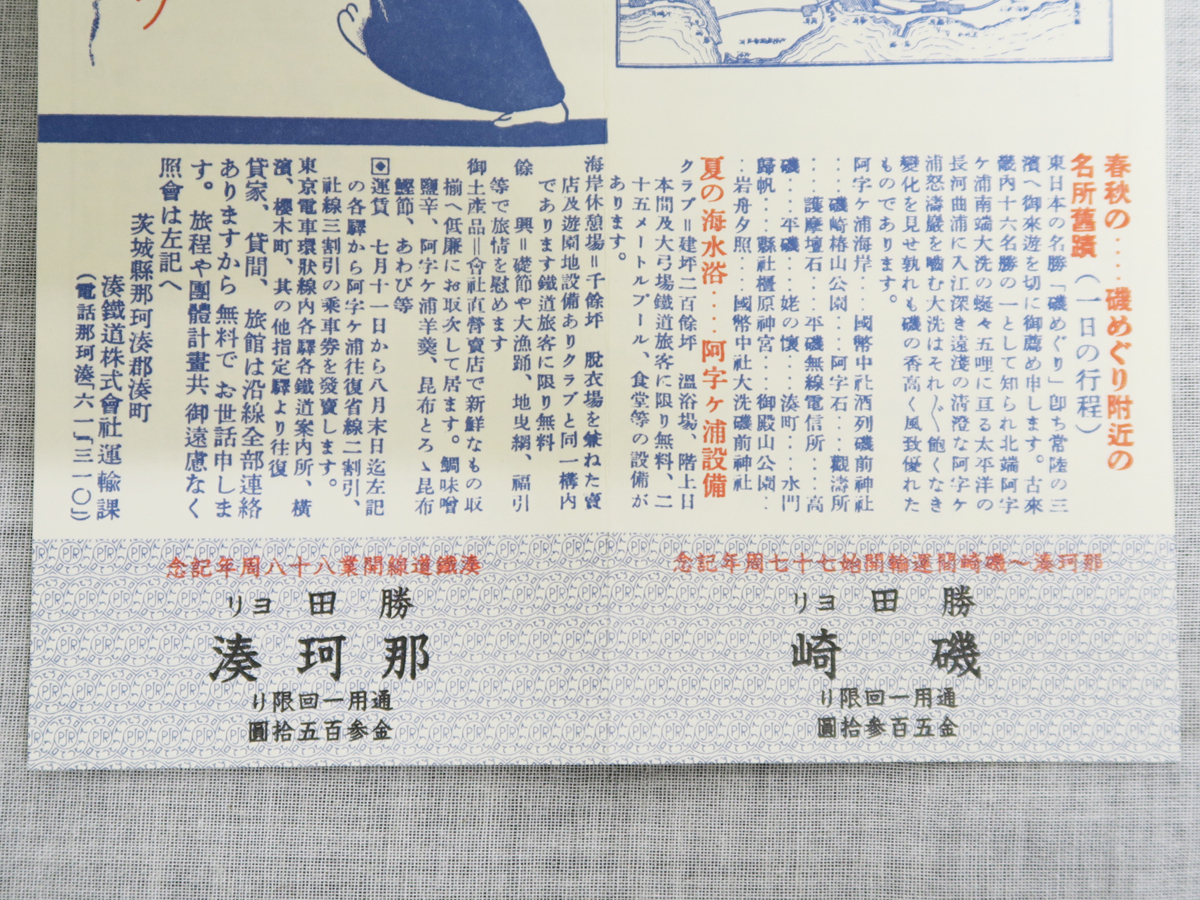 春秋の‥‥磯めぐり附近の
名所舊蹟（一日の行程）
東日本の名勝「磯めぐり」卽ち常陸の三
濱へ御來遊を切に御薦め申します。古來
畿内十六名勝の一として知られ北端阿字
ケ浦南端大洗の蜒々五哩に亘る太平洋の
長河曲浦に入江深き遠淺の淸澄な阿字ケ
浦怒濤巖を嚙む大洗はそれ〲飽くなき
變化を見せ孰れも磯の香高く風致優れた
ものであります。
阿字ケ浦海岸‥‥國幣中社酒列磯前神社
‥‥磯崎椿山公園‥‥阿字石‥‥觀濤所
‥‥護摩壇石‥‥平磯無線電信所‥‥高
磯‥‥平磯‥‥姥の懷‥‥湊町‥‥水門
歸帆‥‥縣社橿原神宮‥‥御殿山公園‥
‥岩舟夕照‥‥國幣中社大洗磯前神社
夏の海水浴‥‥阿字ケ浦設備
クラブ＝建坪二百餘坪　溫浴場、階上日
本間及大弓場鐵道旅客に限り無料、二
十五メートルプール、食堂等の設備が
あります。
海岸休憩場＝千餘坪　脫衣場を兼ねた賣
店及遊園地設備ありクラブと同一構内
であります鐵道旅客に限り無料
餘　興＝磯節や大漁踊、地曳網、福引
等で旅情を慰めます
御土產品＝會社直營賣店で新鮮なもの取
揃へ低廉にお取次して居ます。鯛味噌
鹽辛、阿字ケ浦羊羹、昆布とろゝ昆布
鰹節、あわび等
運賃　七月十一日から八月末日迄左記
の各驛から阿字ケ浦往復省線二割引、
社線三割引の乘車券を發賣します。
東京電車環狀線内各驛各鐵道案内所、橫
濱、櫻木町、其の他指定驛より往復
貸家、貸間、旅館は沿線全部連絡
ありますから無料でお世話申しま
す。旅程や團體計畫共御遠慮なく
照會は左記へ
茨城縣那珂湊郡湊町
湊鐵道株式會社運輸課
（電話那珂湊「六一」「三一〇」）
那珂湊〜磯崎間運輸開始七十七周年記念
勝田ヨリ
磯崎
通用一回限り
金五百參拾圓
湊鐵道線開業八十八周年記念
勝田ヨリ
那珂湊
通用一回限り
金參百五拾圓